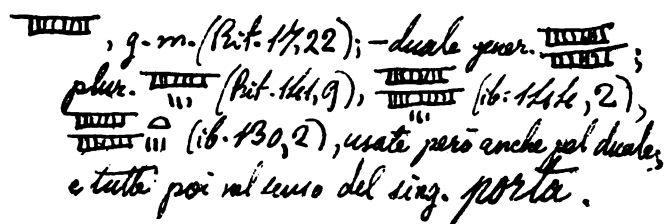 , g. m. (Rit. 17, 22); – duale gener. ;
plur. (Rit. 141, 9), (ib. 144, 2),
(ib. 130, 2), usate però anche pel duale;
e tutte poi nel senso del sing. porta.